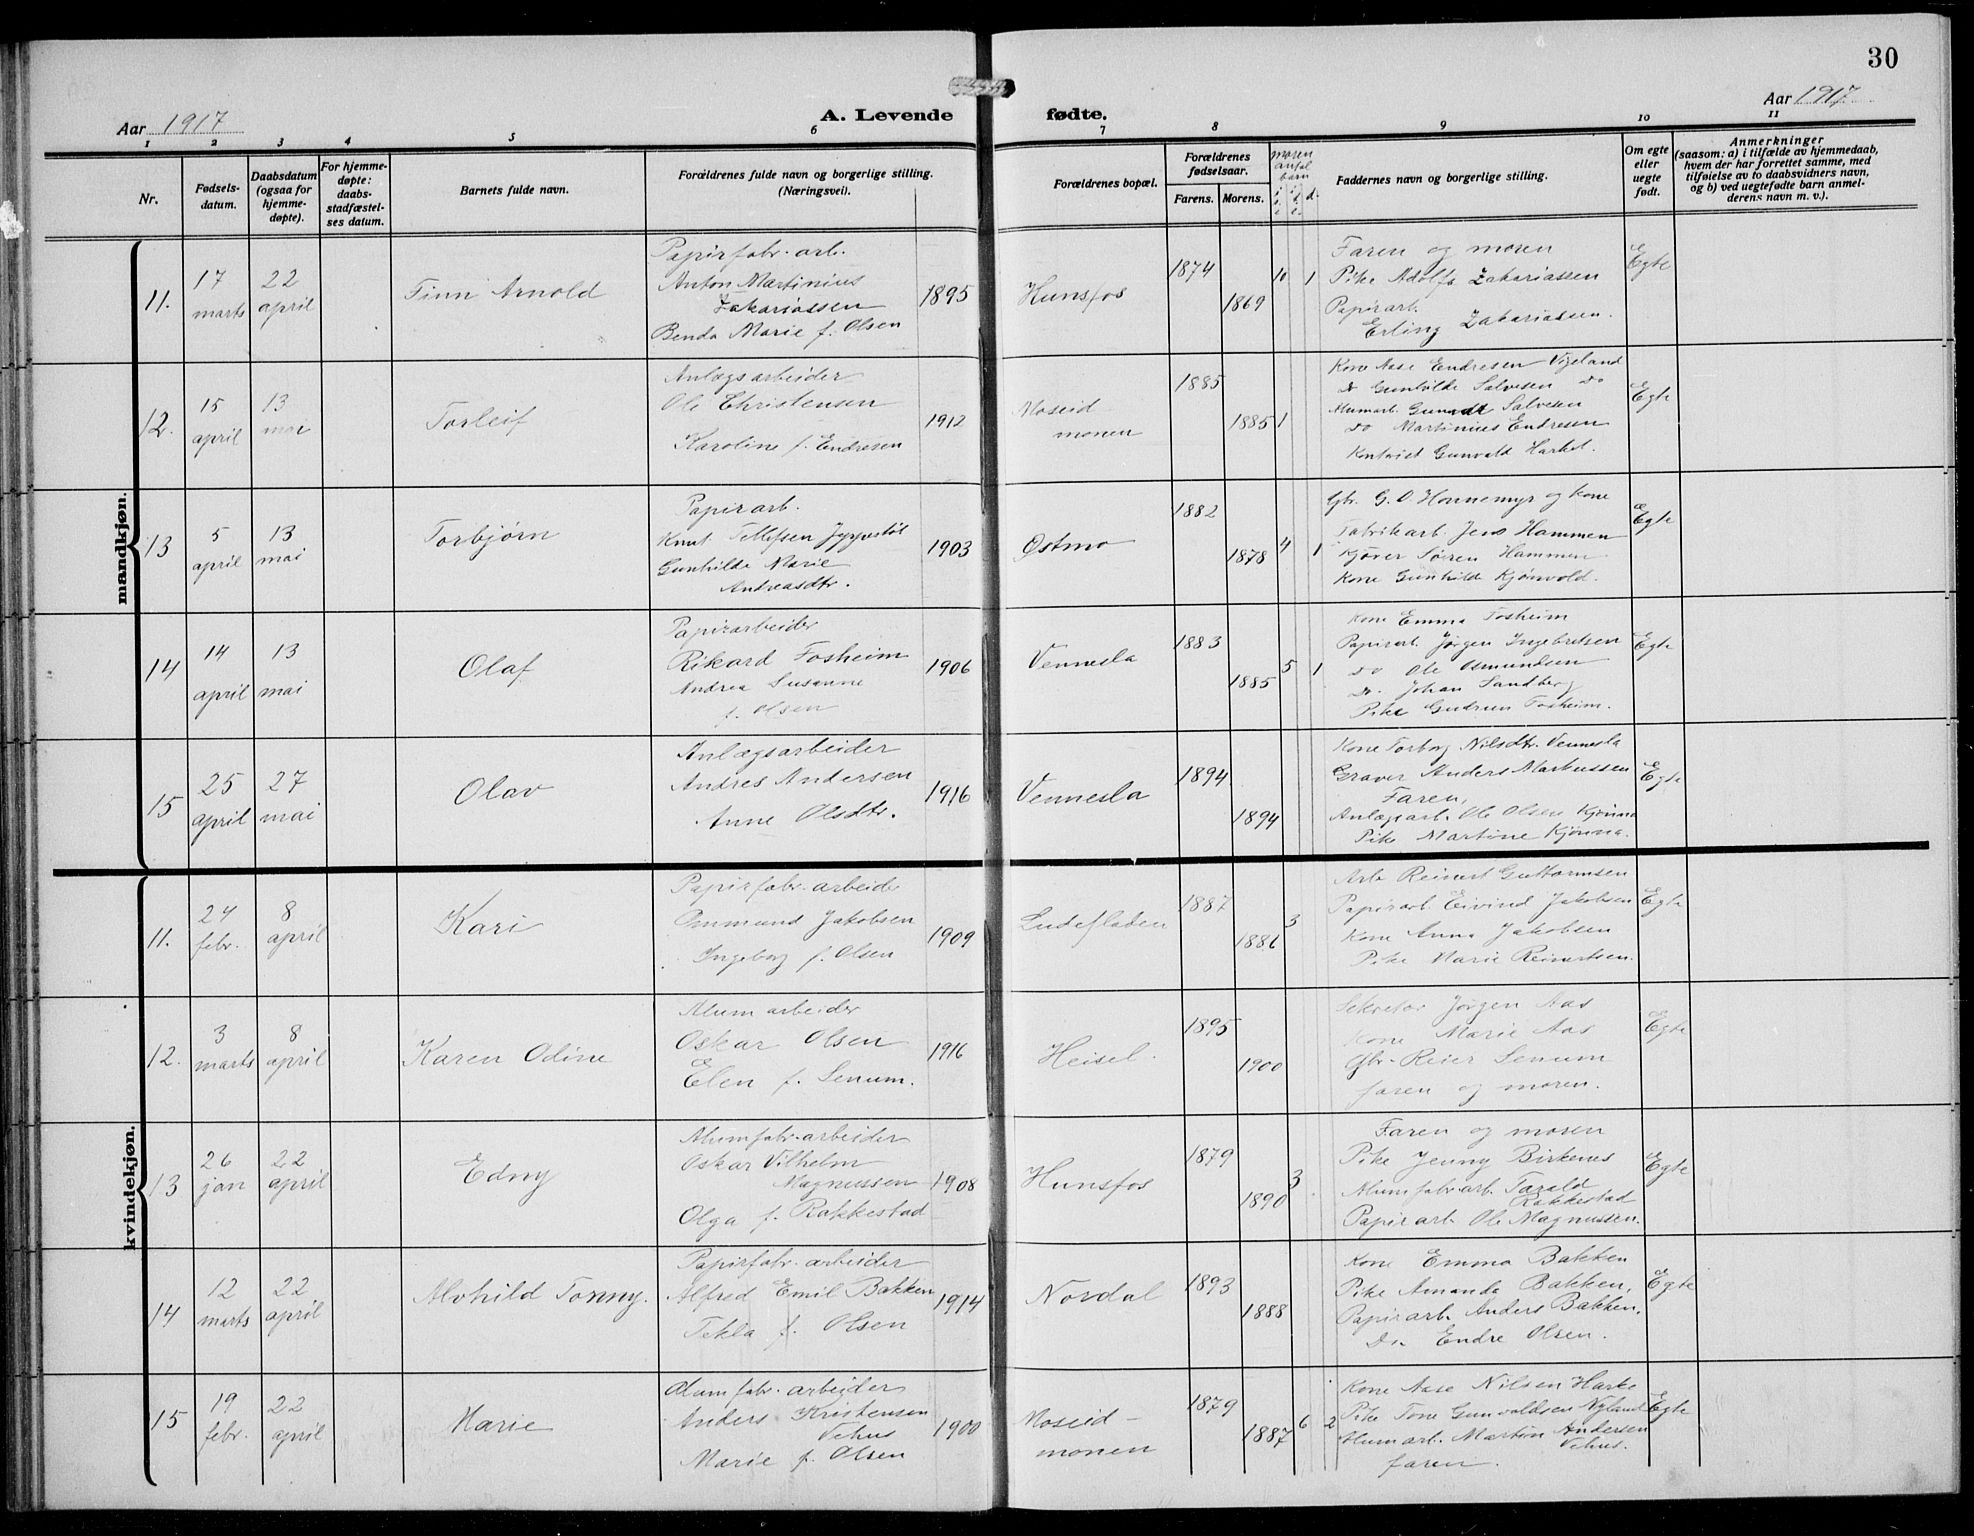 30
Aar 1917
A. Levende fødte.
Aar 1917
1 2 3 4 5 6 7 8 9 10 11
Nr.
Fødsels-
datum.
Daabsdatum
(ogsaa for
hjemme-
døpte).
For hjemme-
døpte:
daabs-
stadfæstel-
ses datum.
Barnets fulde navn.
Forældrenes fulde navn og borgerlige stilling.
(Næringsvei).
Forældrenes bopæl.
Forældrenes
fødselsaar.
Farens. Morens.
moren
antal
barn
Faddernes navn og borgerlige stilling.
Om egte
eller
uegte
født.
Anmerkninger
(saasom: a) i tilfælde av hjemmedaab,
hvem der har forrettet samme, med
tilføielse av to daabsvidners navn,
og b) ved uegtefødte barn anmel-
derens navn m. v.).
mandkjøn.
11.
17
marts
22
april
Finn Arnold
Papirfabr. arb.
Anton Martinius
Zakariassen
Benda Marie f. Olsen
1895
Hunsfos
1874
1869
10 1
Faren og moren
Pike Adolfa Zakariassen
Papirarb.
Erling Zakariassen.
Egte
12.
15
april
13
mai
Torleif
Anlægsarbeider
Ole Christensen
Karoline f. Endresen
1912
Moseid
monen
1885
1885
1
Kone Aase Endresen Vigeland
Do Gunhilde Salvesen Do
Alumarb. Salvesen
Do Martinius Endresen
Gunvald Harket.
Egte
13
5
april
13
mai
Torbjørn
Papirarb.
Knut Tellefsen Jeppestøl
Gunhilde Marie
Andreasdtr.
1903
Østmo
1882
1878
4 1
Gbr. G. O. Honnemyr og kone
Fabrikarb. Jens Hammen
Kjører Søren Hammen
Kone Gunhilde Kjønvold.
Egte
14
14
april
13
mai
Olaf
Papirarbeider
Rikard Fosheim
Andrea Susanne
f. Olsen
1906
Vennesla
1883
1885
5 1
Kone Emma Fosheim
Papirarb. Jørgen Ingebretsen
Do Ole Osmundsen
Do. Johan Sandberg
Pike Gudrun Fosheim.
Egte
15
25
april
27
mai
Olav
Anlægsarbeider
Andres Andersen
Anne Olsdtr.
1916
Vennesla
1894
1894
Kone Torborg Nilsdtr. Vennesla
Graver Anders Markussen
Faren,
Anlægsarb. Ole Olsen Kjønna
Pike Martine Kjønna.
Egte
kvindekjøn.
11.
24
febr.
8
april
Kari
Papirfabr. arbeider
Ommund Jakobsen
Ingeborg f. Olsen
1909
Ludefladen
1887
1886
3
Arb. Reinert Guttormsen
Papirarb. Eivind Jakobsen
Kone Anna Jakobsen
Pike Marie Reinertsen.
Egte
12.
3
marts
8
april
Karen Odine
Alumarbeider
Oskar Olsen
Elen f. Senum.
1916
Heisel.
1895
1900
Sekretær Jørgen Aas
Kone Marie Aas
Gbr. Reier Senum
faren og moren.
Egte
13
26
jan
22
april
Edny
Alumfabr. arbeider
Oskar Vilhelm
Magnussen
Olga f. Rakkestad
1908
Hunsfos
1879
1890
3
Faren og moren
Pike Jenny Birkenes
Alumfabr. arb. Tarald
Rakkestad
Papirarb. Ole Magnussen.
Egte
14
12
marts
22
april
Alvhild Tonny.
Papirfabr. arbeider
Alfred Emil Bakken
Tekla f. Olsen
1914
Nordal
1893
1888
Kone Emma Bakken
Pike Amanda Bakken,
Papirarb. Anders Bakken.
Do. Endre Olsen.
Egte
15
19
febr.
22
april
Marie
Alumfabr. arbeider
Anders Kristensen
Vehus
Marie f. Olsen
1900
Moseid-
monen
1879
1887
6 2
Kone Aase Nilsen Harke
Pike Tone Gunvaldsen Nyland
Alumarb. Martin Andersen
Vehus.
faren.
Egte